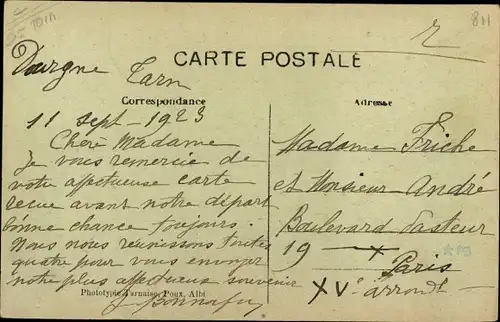 811
CARTE POSTALE
Dourgne Tarn
Correspondance
Adresse
11 Sept - 1923
Chère Madame
Je vous remercie de
votre affectueuse carte
reçue avant notre départ
bonne chance toujours.
Nous nous réunissons toutes
quatre pour vous envoyer
notre plus affectueux souvenir
Phototypie Tarnaise, Poux, Albi
Madame Friche
et Monsieur André
Boulevard Pasteur
19
Paris
XVe arrondt